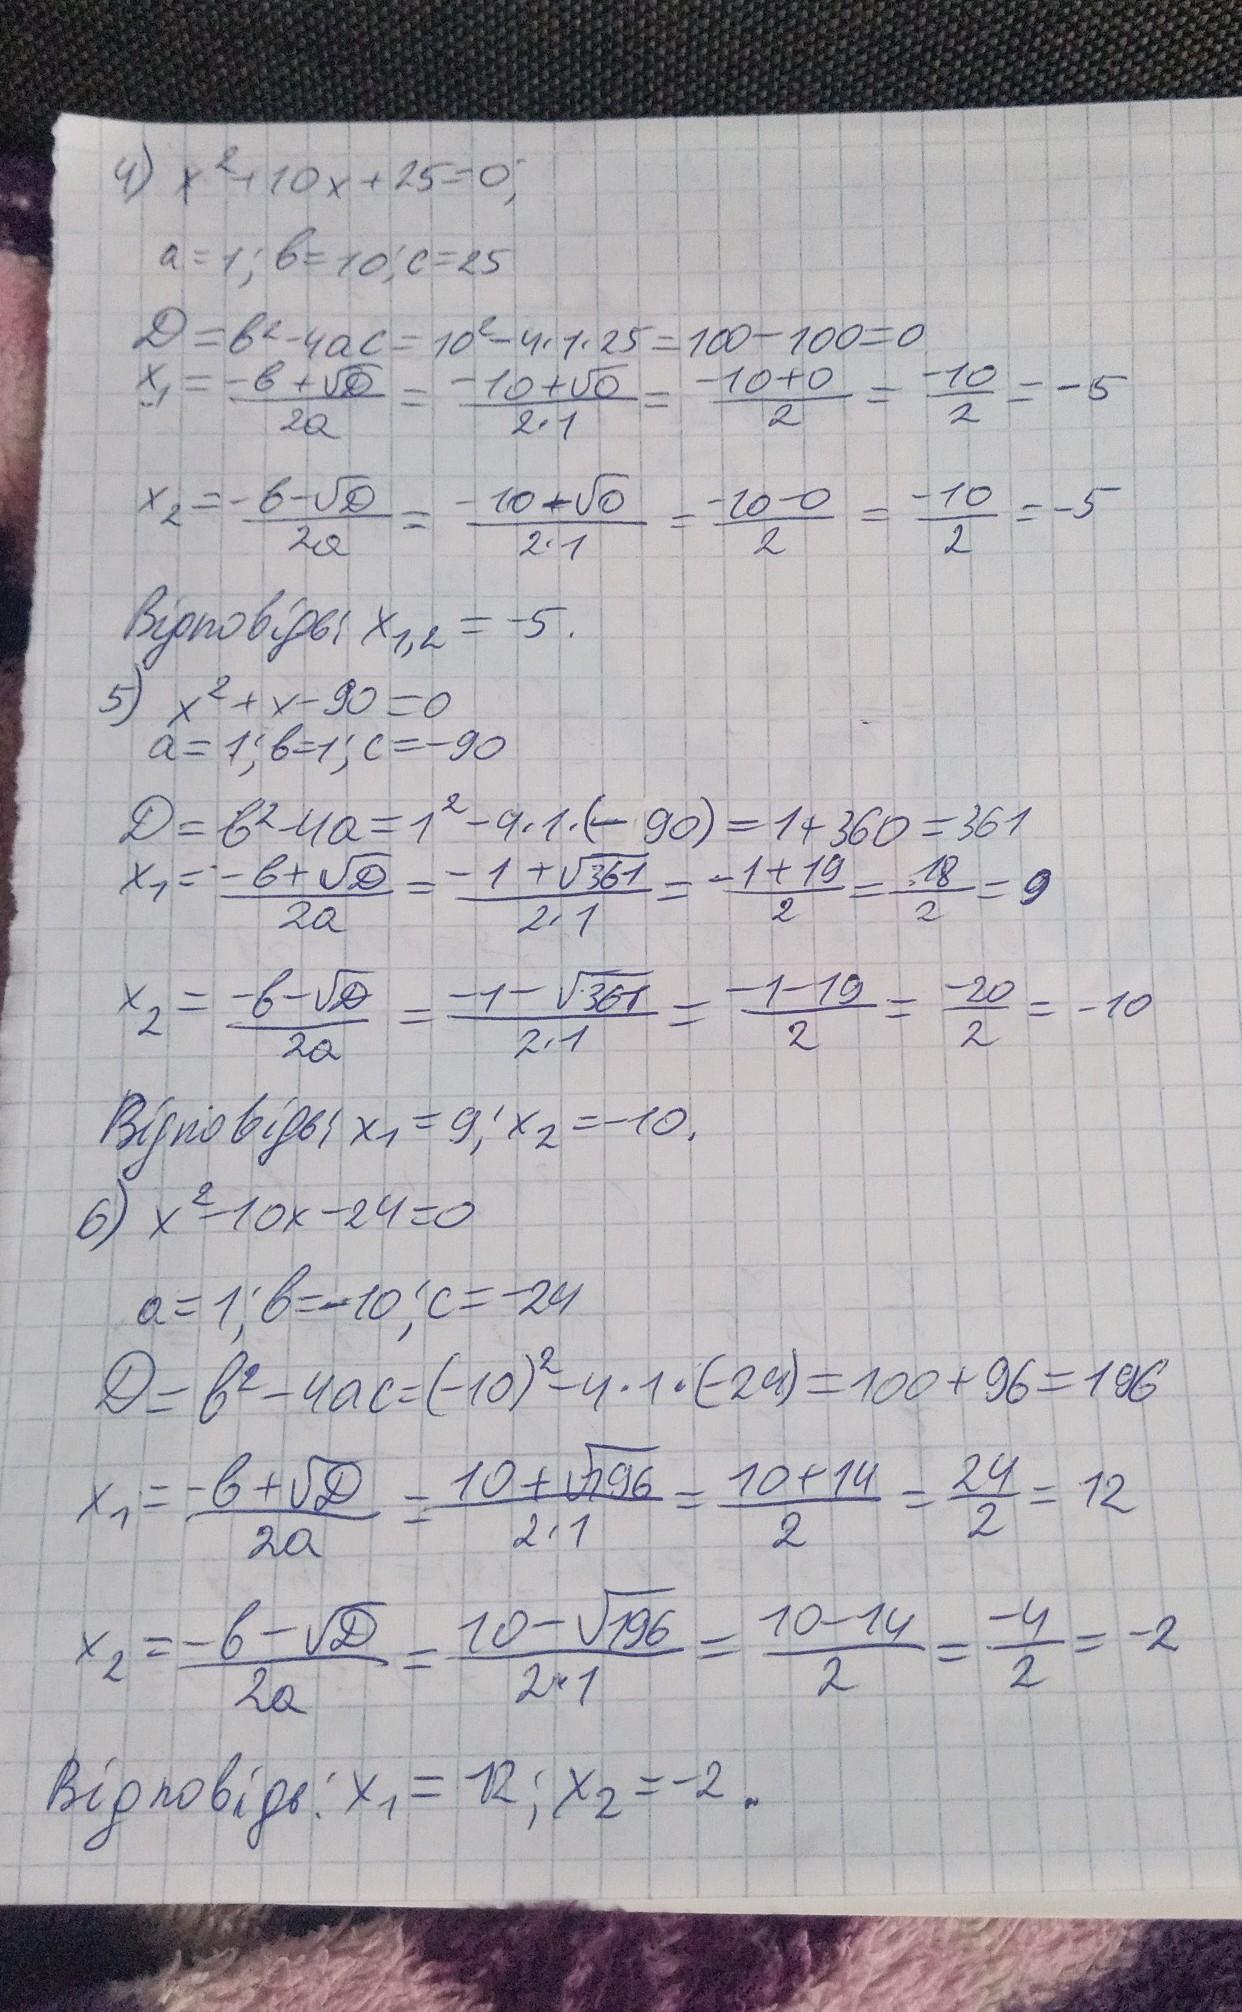 4) x²+10x+25=0;
a=1; b=10; c=25
D=b²-4ac=10²-4·1·25=100-100=0
x₁=(-b+√D)/2a=(-10+√0)/2·1=(-10+0)/2=-10/2=-5
x₂=(-b-√D)/2a=(-10-√0)/2·1=(-10-0)/2=-10/2=-5
Відповідь: x₁,₂=-5.
5) x²+x-90=0
a=1; b=1; c=-90
D=b²-4a=1²-4·1·(-90)=1+360=361
x₁=(-b+√D)/2a=(-1+√361)/2·1=(-1+19)/2=18/2=9
x₂=(-b-√D)/2a=(-1-√361)/2·1=(-1-19)/2=-20/2=-10
Відповідь: x₁=9; x₂=-10.
6) x²-10x-24=0
a=1; b=-10; c=-24
D=b²-4ac=(-10)²-4·1·(-24)=100+96=196
x₁=(-b+√D)/2a=(10+√196)/2·1=(10+14)/2=24/2=12
x₂=(-b-√D)/2a=(10-√196)/2·1=(10-14)/2=-4/2=-2
Відповідь: x₁=12; x₂=-2.